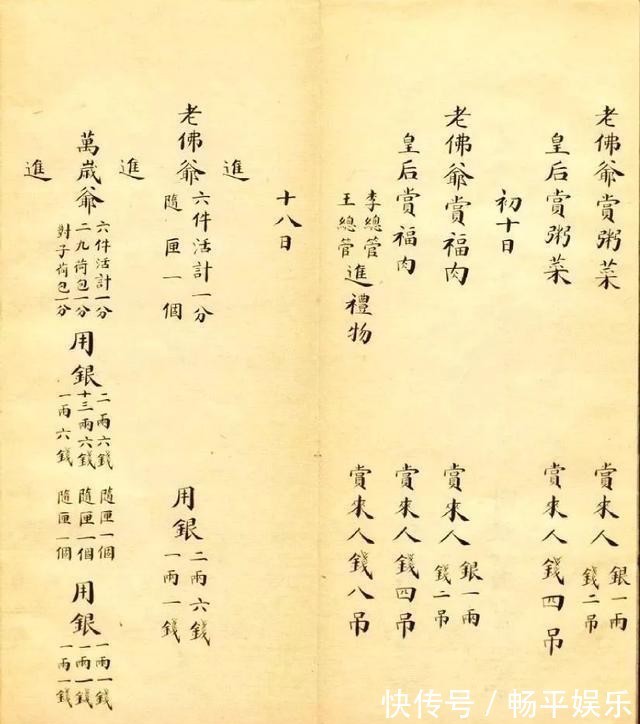 老佛爺賞粥菜 賞來人 銀一兩 錢二吊
皇后賞粥菜 賞來人錢四吊
初十日
老佛爺賞福肉 賞來人 銀一兩 錢二吊
皇后賞福肉 賞來人錢四吊
李總管 王總管 進禮物 賞來人錢八吊
十八日
進
老佛爺 六件活計一分 隨匣一個 用銀 二兩六錢 一兩一錢
進
萬歲爺 六件活計一分 二九荷包一分 對子荷包一分 用銀 二兩六錢 十三兩六錢 一兩六錢 隨匣一個 隨匣一個 隨匣一個 用銀 一兩一錢 一兩一錢 一兩一錢
進
快传号/畅平娱乐